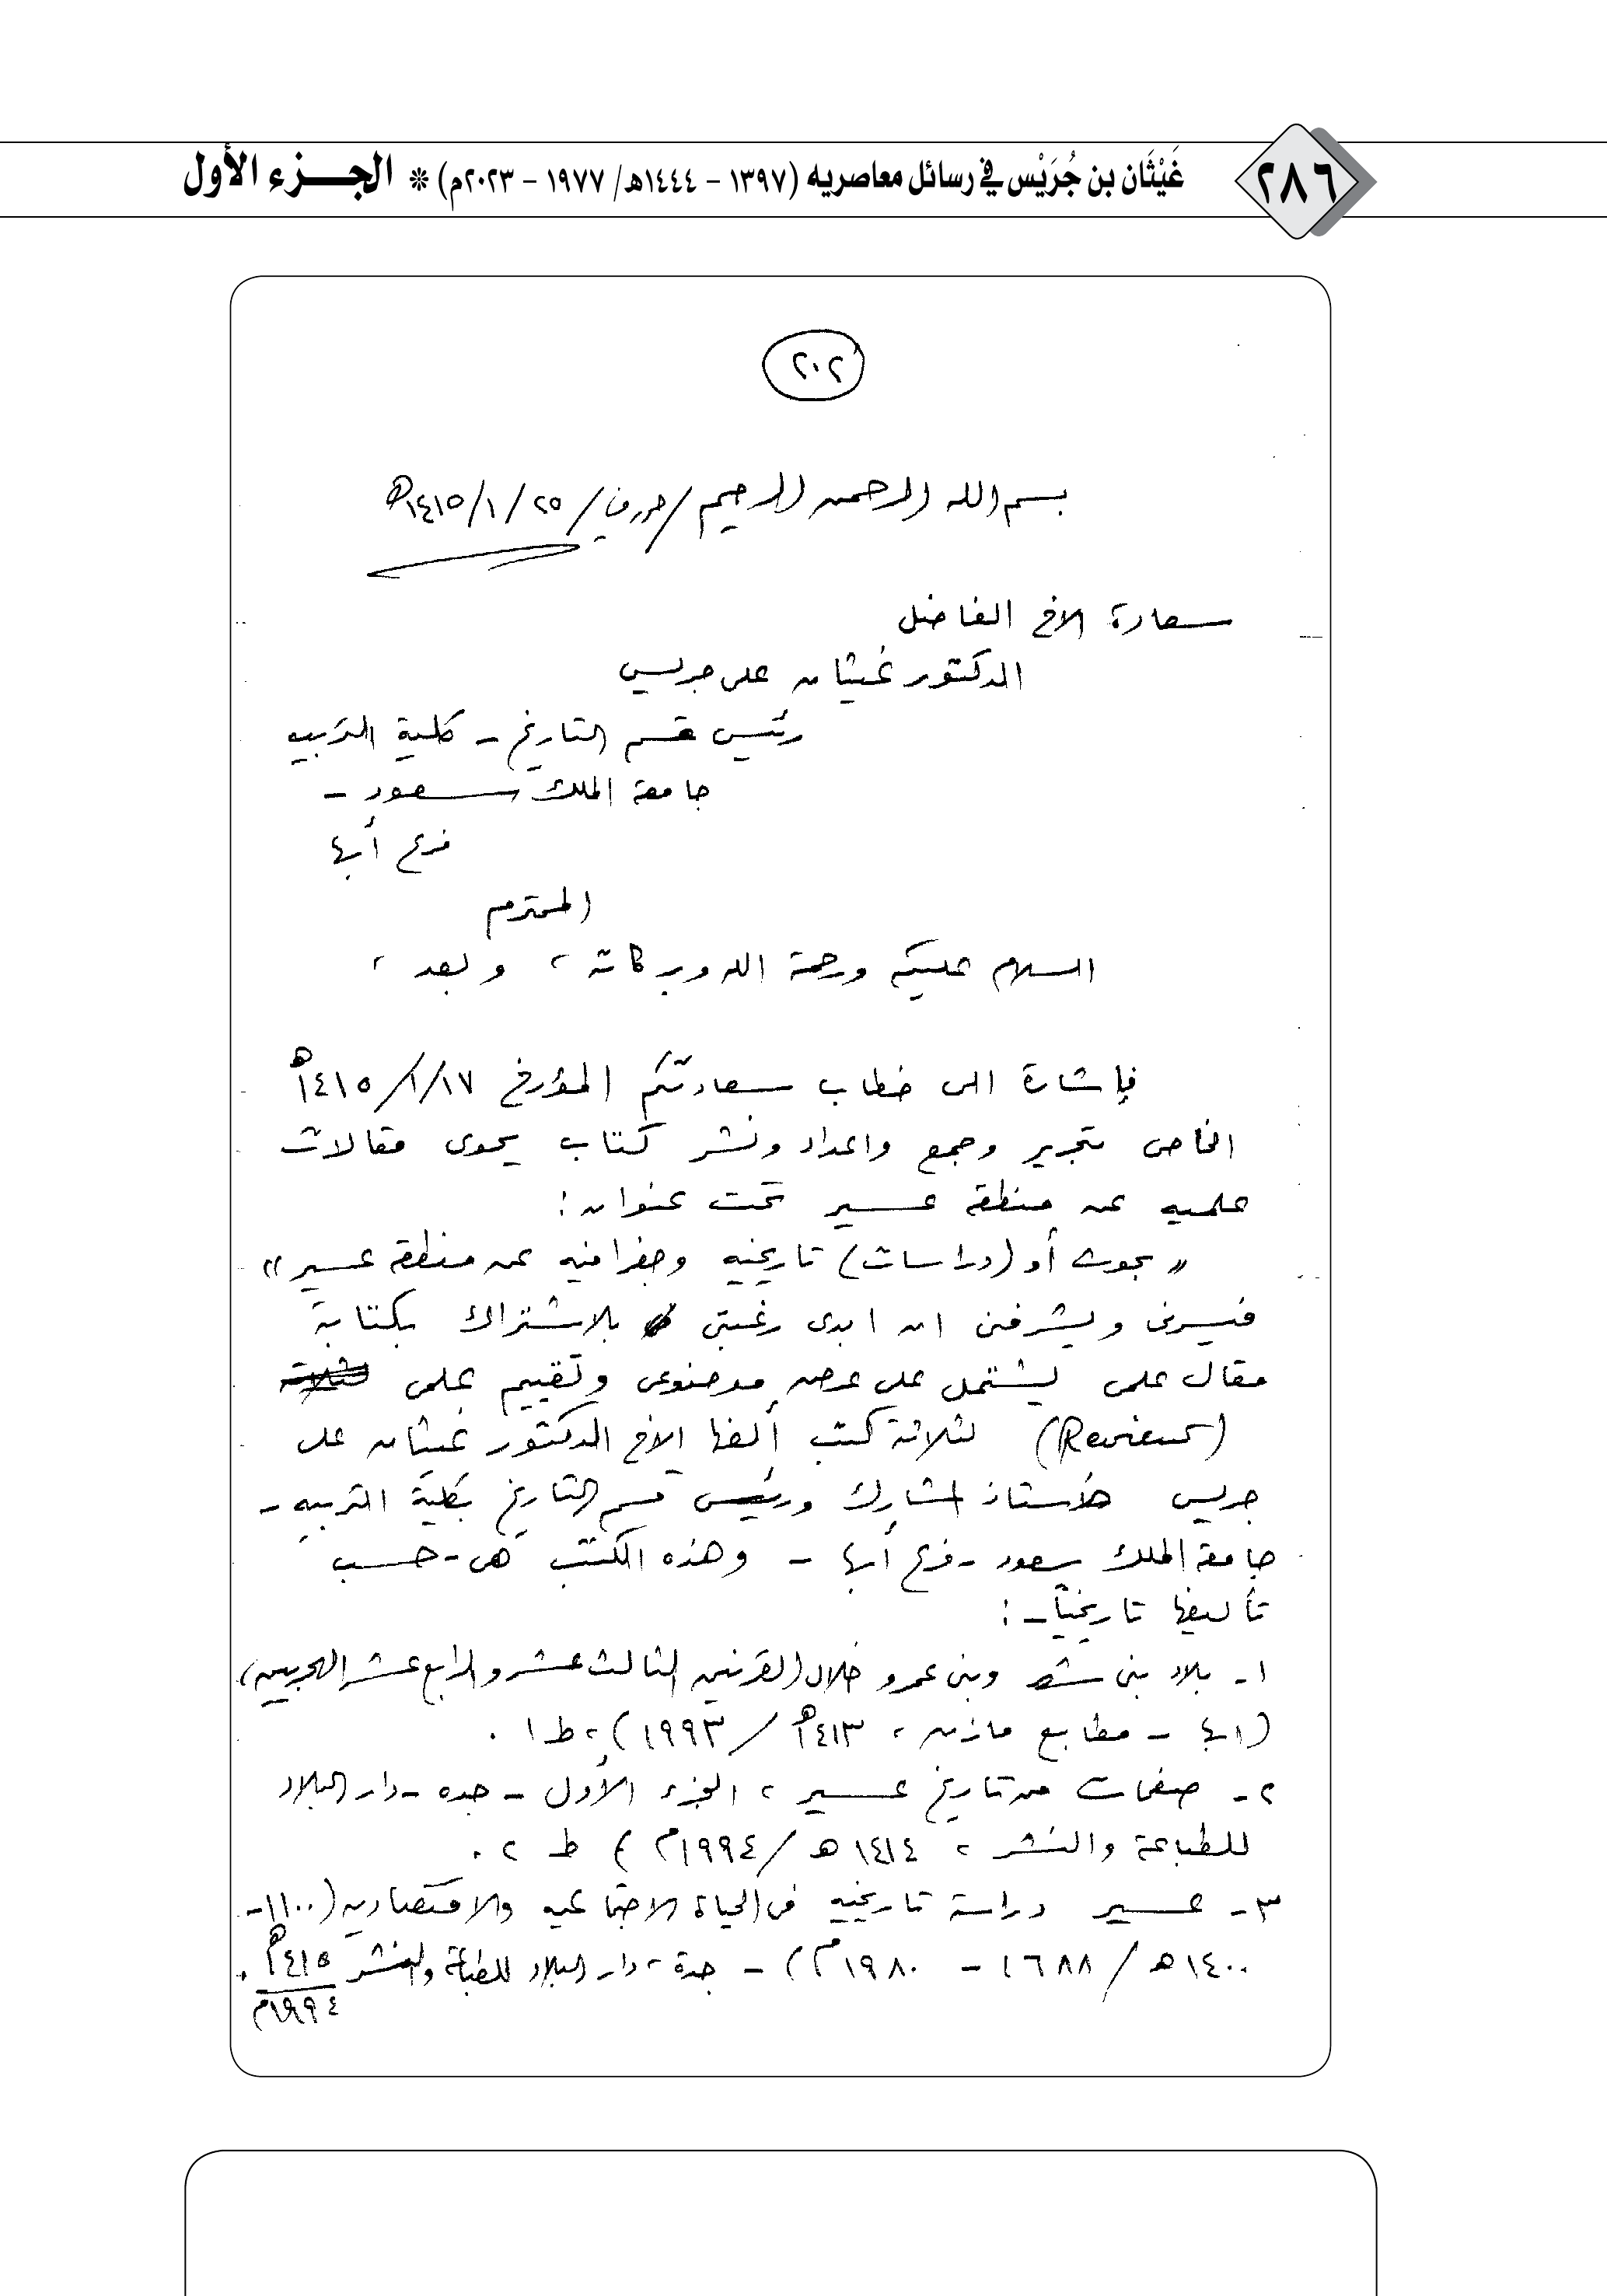 ٢٨٦
غَيْثَان بن جُرَيْس في رسائل معاصريه (١٣٩٧ - ١٤٤٤هـ/ ١٩٧٧ - ٢٠٢٣م) * الجزء الأول
٢٠٢
بسم الله الرحمن الرحيم / / ٢٥ / ١ / ١٤١٥هـ
سعادة الاخ الفاضل
الدكتور غيثان على جريس
رئيس قسم التاريخ - كلية التربيه
جامعة الملك سعود -
فرع أبها
المحترم
السلام عليكم ورحمة الله وبركاته ، وبعد ،
فإشارة الى خطاب سعادتكم المؤرخ ١٧/١/١٤١٥هـ
الخاص بتحرير وجمع واعداد ونشر كتاب يحوى مقالات
علميه عن منطقة عسير تحت عنوان :
" بحوث أو (دراسات) تاريخيه وجغرافيه عن منطقة عسير "
فيسرنى ويشرفنى ان ابدى رغبتى بالاشتراك بكتابة
مقال علمى يشتمل على عرض موضوعى وتقييم علمى
(Review) لثلاثة كتب ألفها الاخ الدكتور غيثان على
جريس الأستاذ المشارك ورئيس قسم التاريخ بكلية التربيه -
جامعة الملك سعود - فرع أبها - وهذه الكتب هى - حسب
تأليفها تاريخياً - :
١- بلاد بنى شهر وبنى عمرو خلال القرنين الثالث عشر والرابع عشر الهجريين،
(ابها - مطابع مازن ، ١٤١٣هـ / ١٩٩٣) ، ط ١ .
٢- صفحات من تاريخ عسير ، الجزء الأول - جده - دار البلاد
للطباعة والنشر ، ١٤١٤ هـ / ١٩٩٤م ) ط ٢ .
٣- عسير دراسة تاريخيه فى الحياة الاجتماعيه والاقتصاديه (١١٠٠-
١٤٠٠ هـ / ١٦٨٨ - ١٩٨٠م) - جدة ، دار البلاد للطباعة والنشر ١٤١٥هـ .
١٩٩٤م